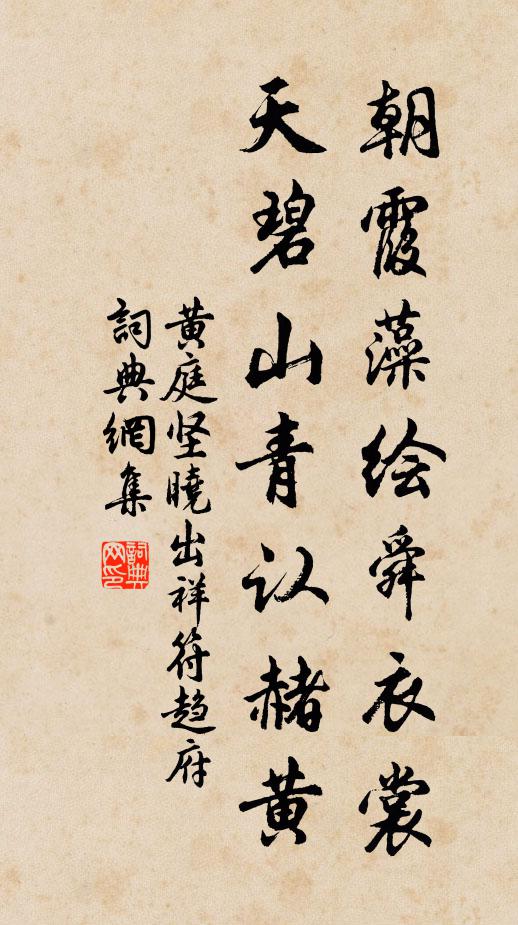 朝霞藻绘舜衣裳
天碧山青认赭黄
黄庭坚曉出祥符趋府
詞典網集
詞典网印